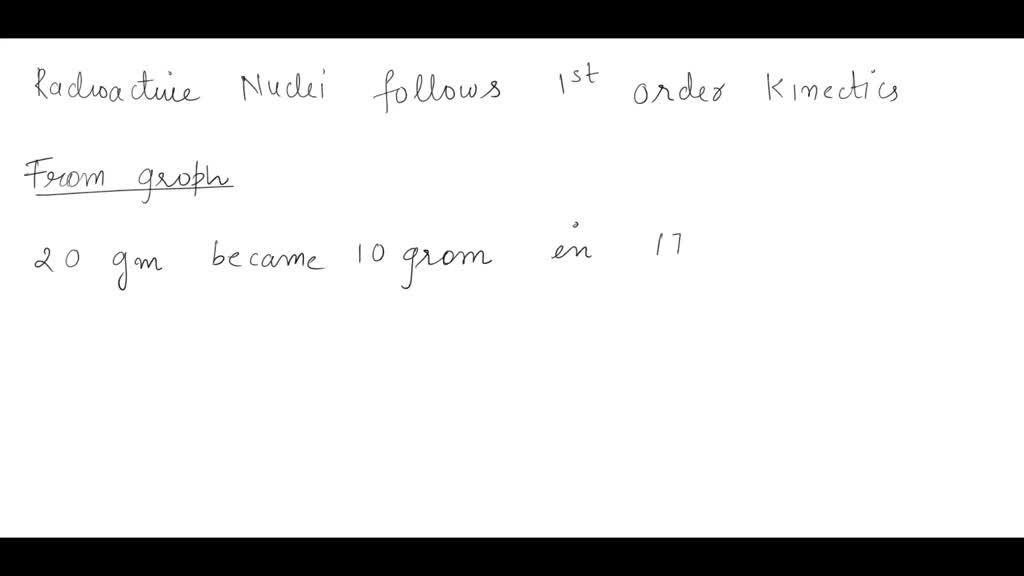 Radioactive Nuclei follows 1st order Kinectics
From groph
20 gm became 10 grom in 17